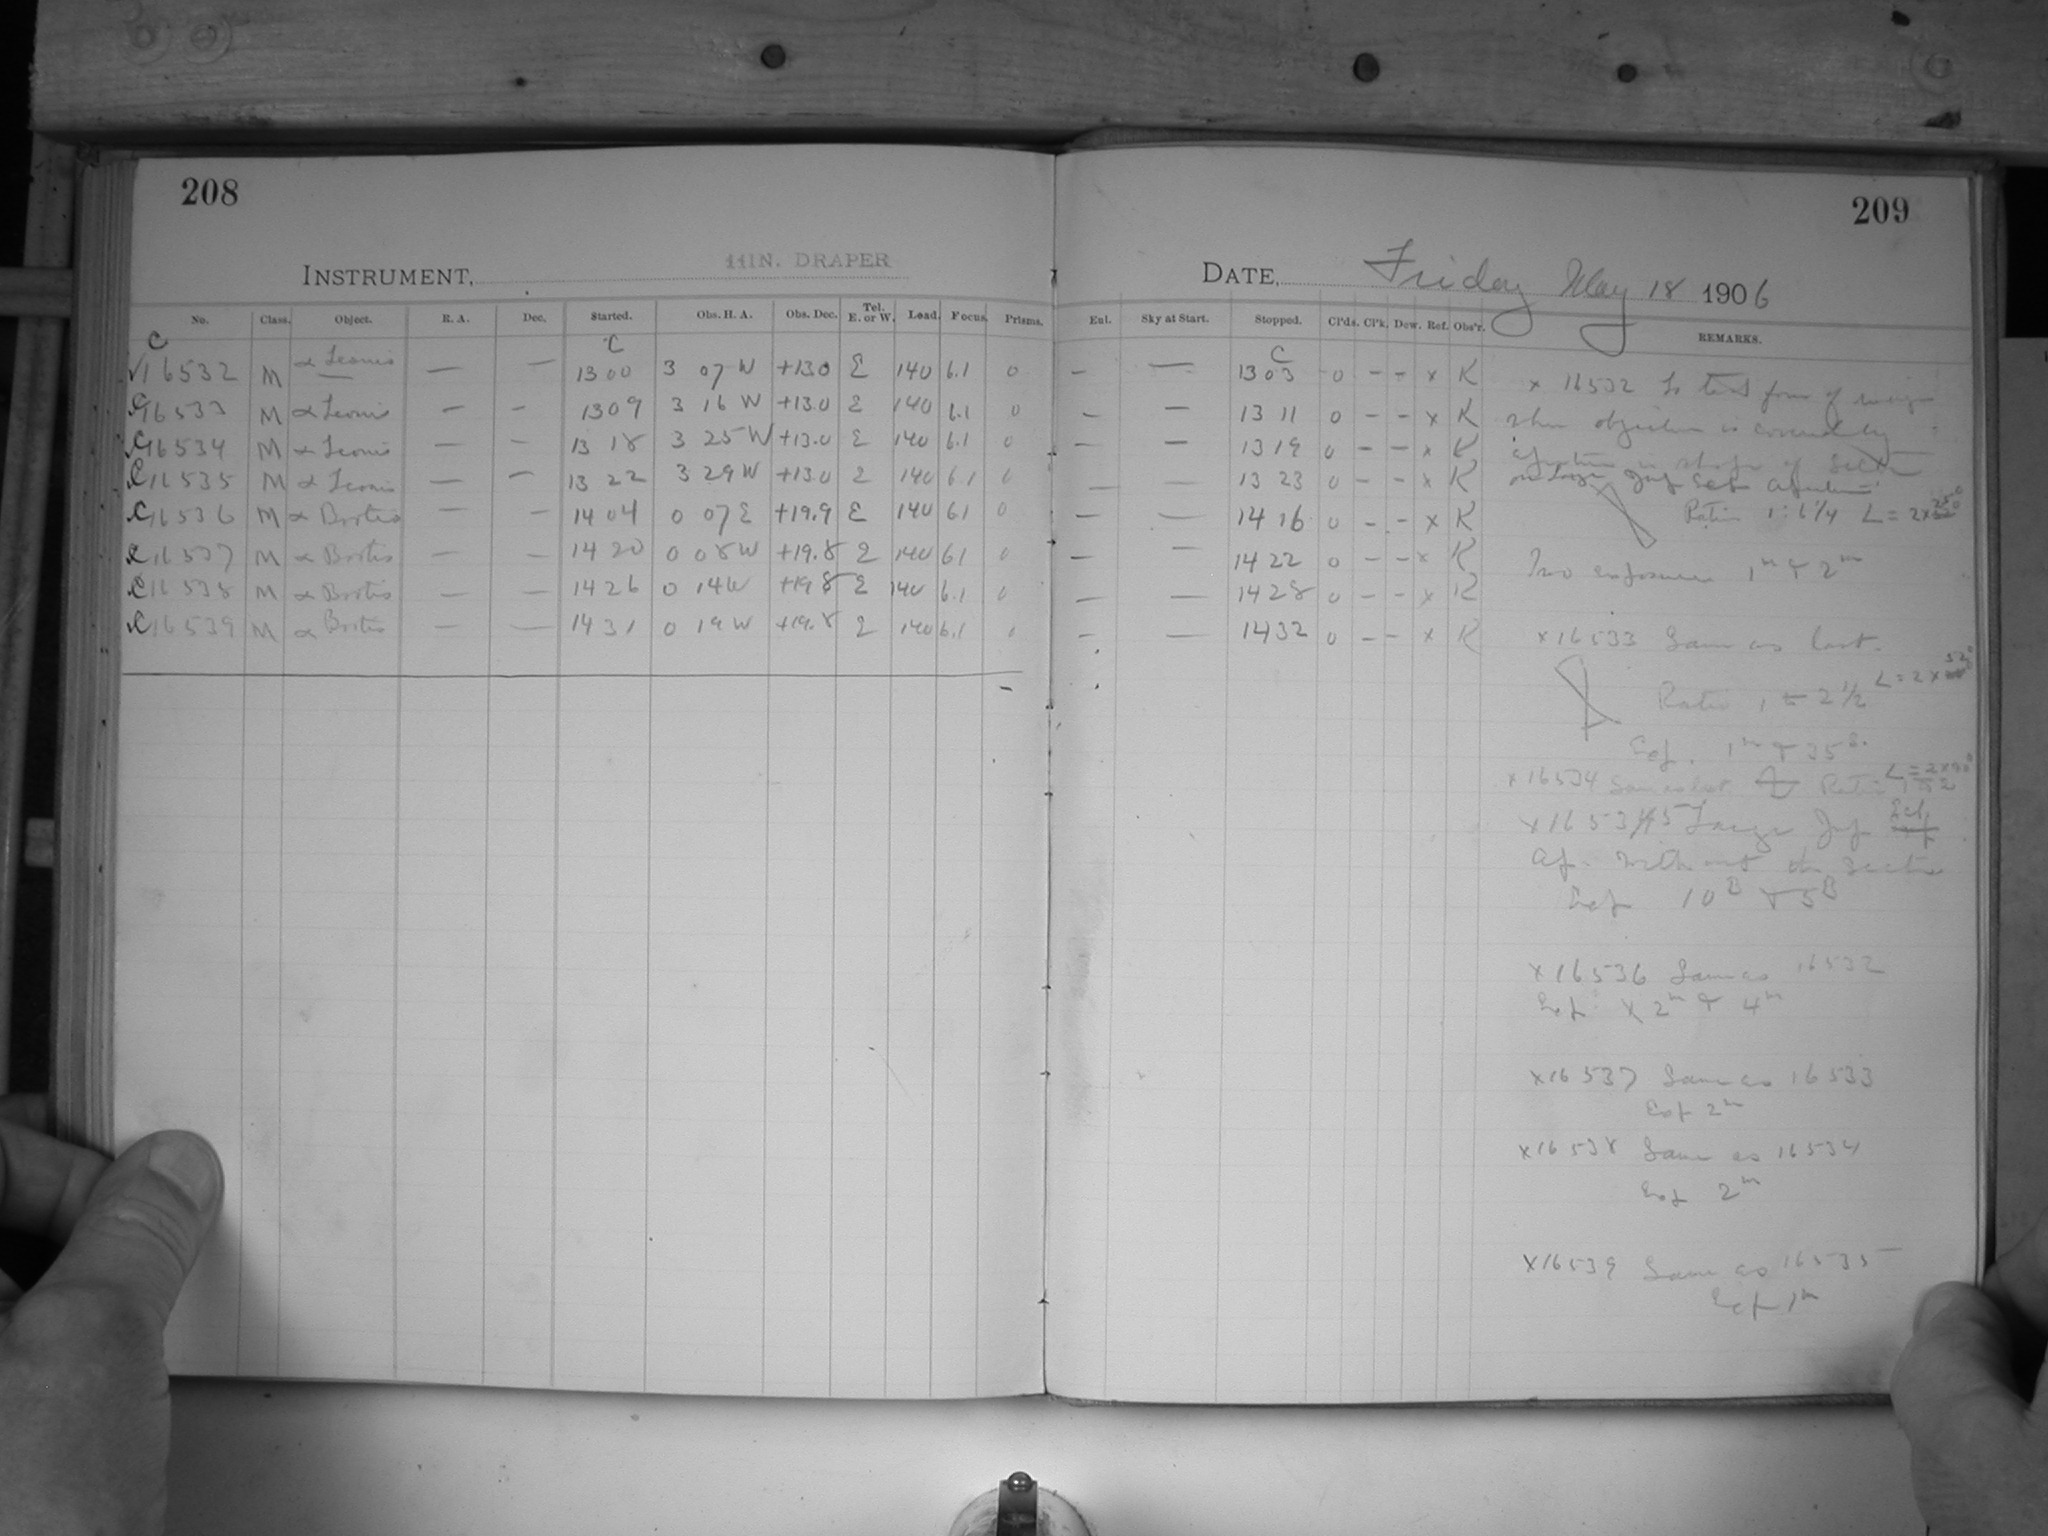 208
INSTRUMENT, 11IN. DRAPER
No. Class. Object. R. A. Dec. Started. Obs. H. A. Obs. Dec. Tel. E. or W. Load. Focus. Prisms.
C C
√16532 M α Leonis — — 1300 3 07 W +13.0 E 140 6.1 0
C16533 M α Leonis — — 1309 3 16 W +13.0 E 140 6.1 0
C16534 M α Leonis — — 13 18 3 25 W +13.0 E 140 6.1 0
C16535 M α Leonis — — 13 22 3 29 W +13.0 E 140 6.1 0
C16536 M α Bootis — — 1404 0 07 E +19.9 E 140 6.1 0
C16537 M α Bootis — — 14 20 0 08 W +19.8 E 140 6.1 0
C16538 M α Bootis — — 1426 0 14 W +19.8 E 140 6.1 0
C16539 M α Bootis — — 14 31 0 19 W +19.8 E 140 6.1 0
209
DATE, Friday May 18 1906
Eul. Sky at Start. Stopped. Cl'ds. Cl'k. Dew. Ref. Obs'r. REMARKS.
C
— — 1303 0 - - x K
— — 13 11 0 - - x K
— — 13 19 0 - - x K
— — 13 23 0 - - x K
— — 14 16 0 - - x K
— — 14 22 0 - - x K
— — 1428 0 - - x K
— — 1432 0 - - x K
x 16532 To test form of
when objective is covered by
aperture in shape of Sector
on Large Jup Ecl aperture
Ratio 1:6 1/4 L = 2 x
Two exposures 1m & 2m
x16533 Same as last.
Ratio 1 to 2 1/2 L = 2 x
Exp. 1m & 35s.
x16534 Same as last Ratio 1 to 2 L = 2 x 90°
x16535 Large Jup Ecl.
Ap. without the Sector
Exp 10B & 5B
x16536 Same as 16532
Exp. 2m & 4m
x16537 Same as 16533
Exp 2m
x16538 Same as 16534
Exp 2m
x16539 Same as 16535
Exp 1m